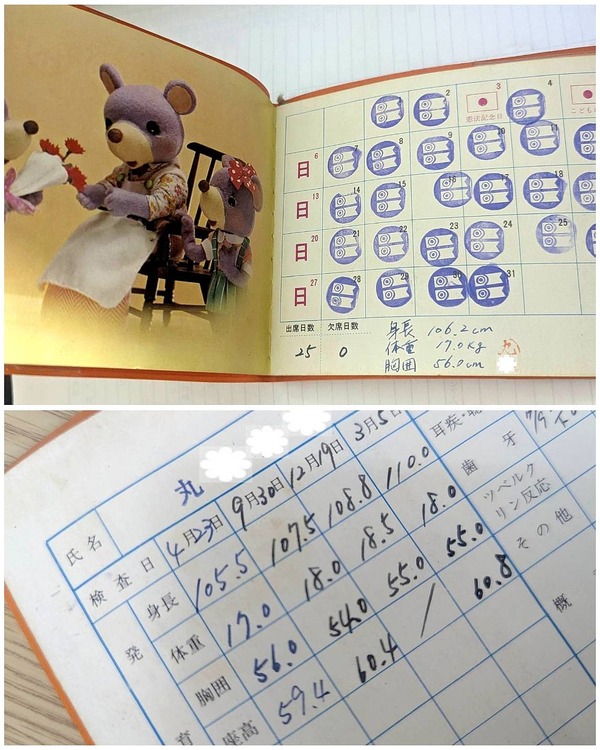 2 3 4
憲法記念日 こども
日 6 7 8 9 10 11
日 13 14 15 16 17 18
日 20 21 22 23 24 25
日 27 28 29 30 31
出席日数 欠席日数
25 0
身長 106.2cm
体重 17.0kg 丸
胸囲 56.0cm
氏名 丸
検査日 4月23日 9月30日 12月19日 3月5日
発育
身長 105.5 107.5 108.8 110.0
体重 17.0 18.0 18.5 18.0
胸囲 56.0 54.0 55.0 55.0
座高 59.4 60.4 / 60.8
耳疾・
歯牙
ツベルク
リン反応
その他
概